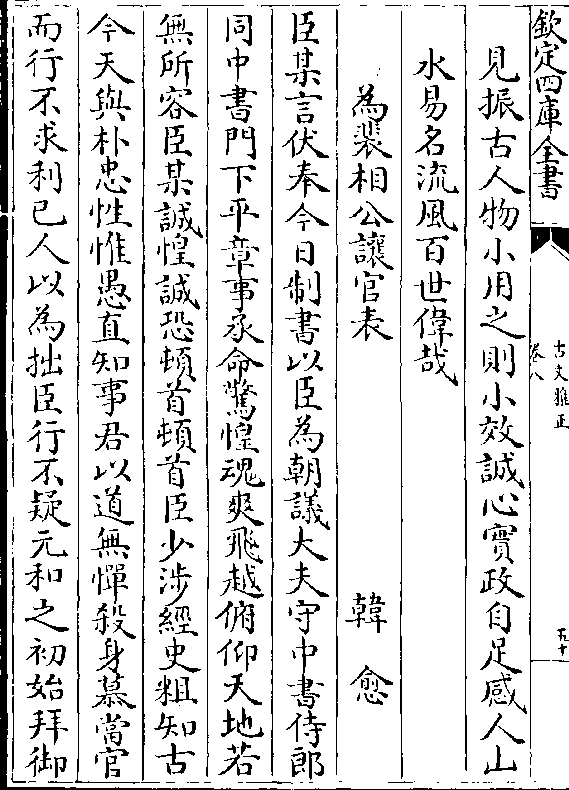 欽定四庫全書
古文雅正
卷八
五十
見振古人物小用之則小效誠心實政自足感人山
水易名流風百世偉哉
為裴相公讓官表
韓愈
臣某言伏奉今日制書以臣為朝議大夫守中書侍郎
同中書門下平章事承命驚惶魂爽飛越俯仰天地若
無所容臣某誠惶誠恐頓首頓首臣少涉經史粗知古
今天與朴忠性惟愚直知事君以道無憚殺身慕當官
而行不求利己人以為拙臣行不疑元和之初始拜御